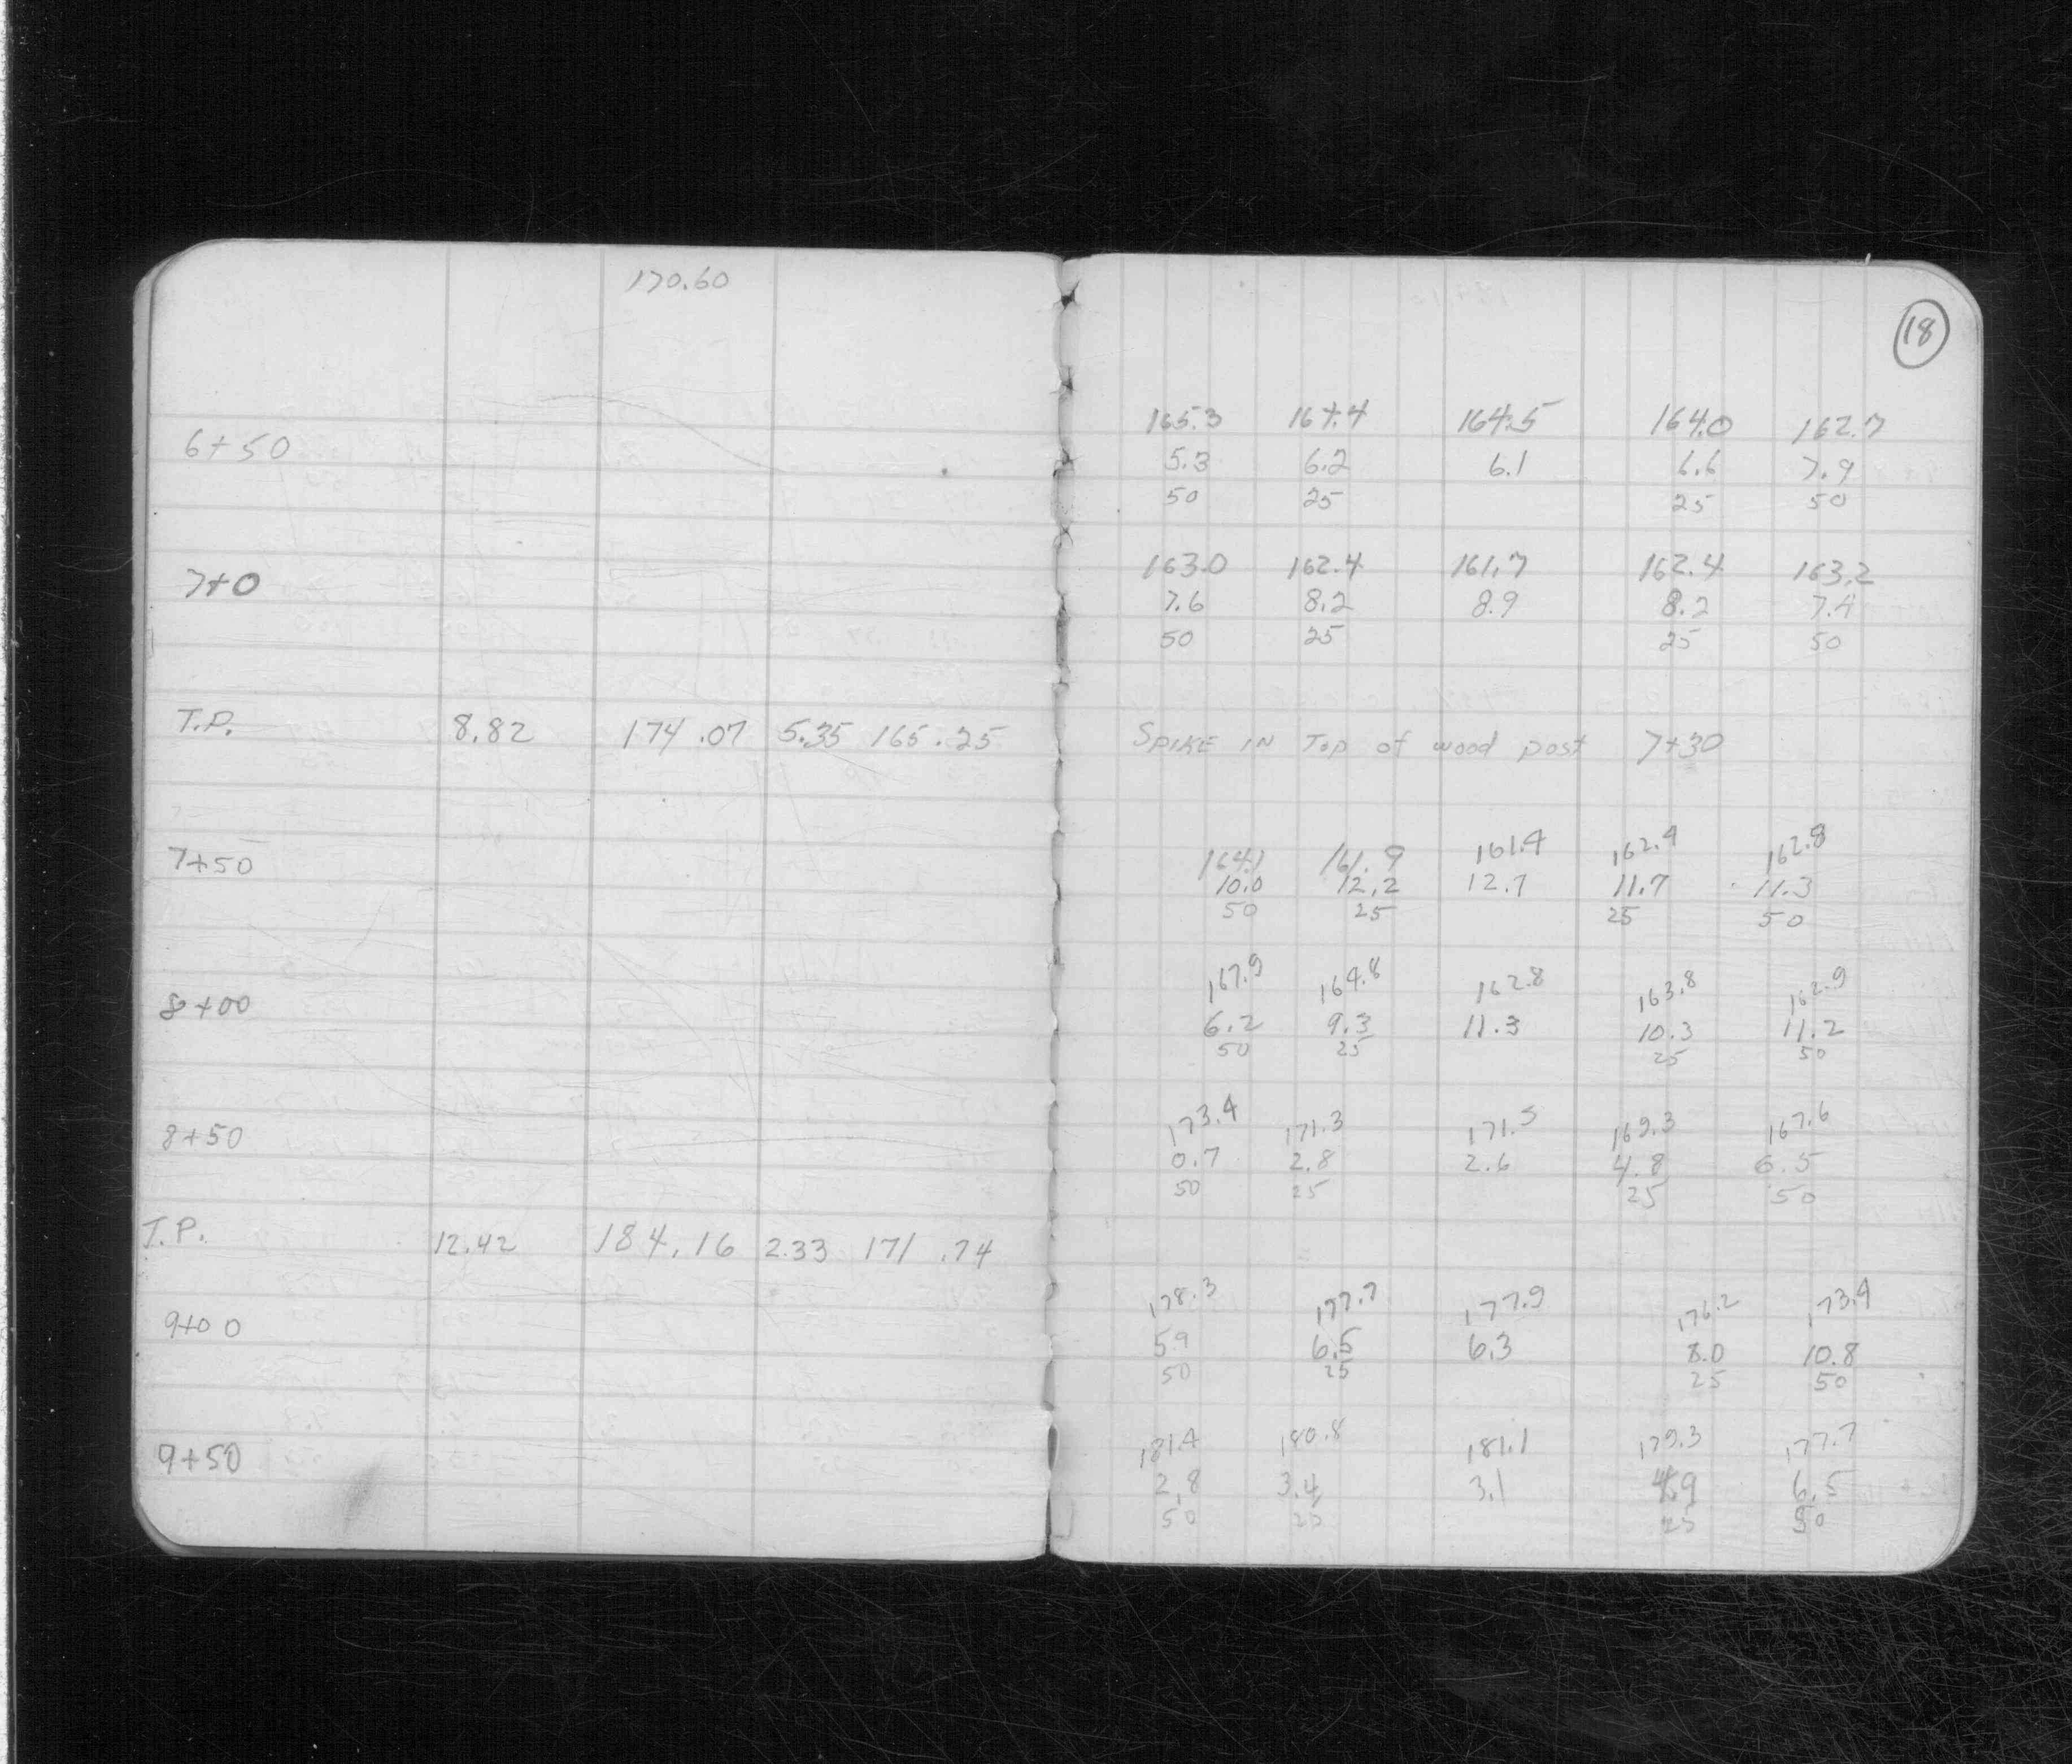 170.60
18
165.3 164.4 164.5 164.0 162.7
6+50 5.3 6.2 6.1 6.6 7.9
50 25 25 50
163.0 162.4 161.7 162.4 163.2
7+0 7.6 8.2 8.9 8.2 7.4
50 25 25 50
T.P. 8.82 174.07 5.35 165.25 SPIKE IN Top of wood post 7+30
164.1 161.9 161.4 162.4 162.8
7+50 10.0 12.2 12.7 11.7 11.3
50 25 25 50
167.9 164.8 162.8 163.8 162.9
8+00 6.2 9.3 11.3 10.3 11.2
50 25 25 50
173.4 171.3 171.5 169.3 167.6
8+50 0.7 2.8 2.6 4.8 6.5
50 25 25 50
T.P. 12.42 184.16 2.33 171.74
178.3 177.7 177.9 176.2 173.4
9+00 5.9 6.5 6.3 8.0 10.8
50 25 25 50
181.4 180.8 181.1 179.3 177.7
9+50 2.8 3.4 3.1 4.9 6.5
50 25 25 50